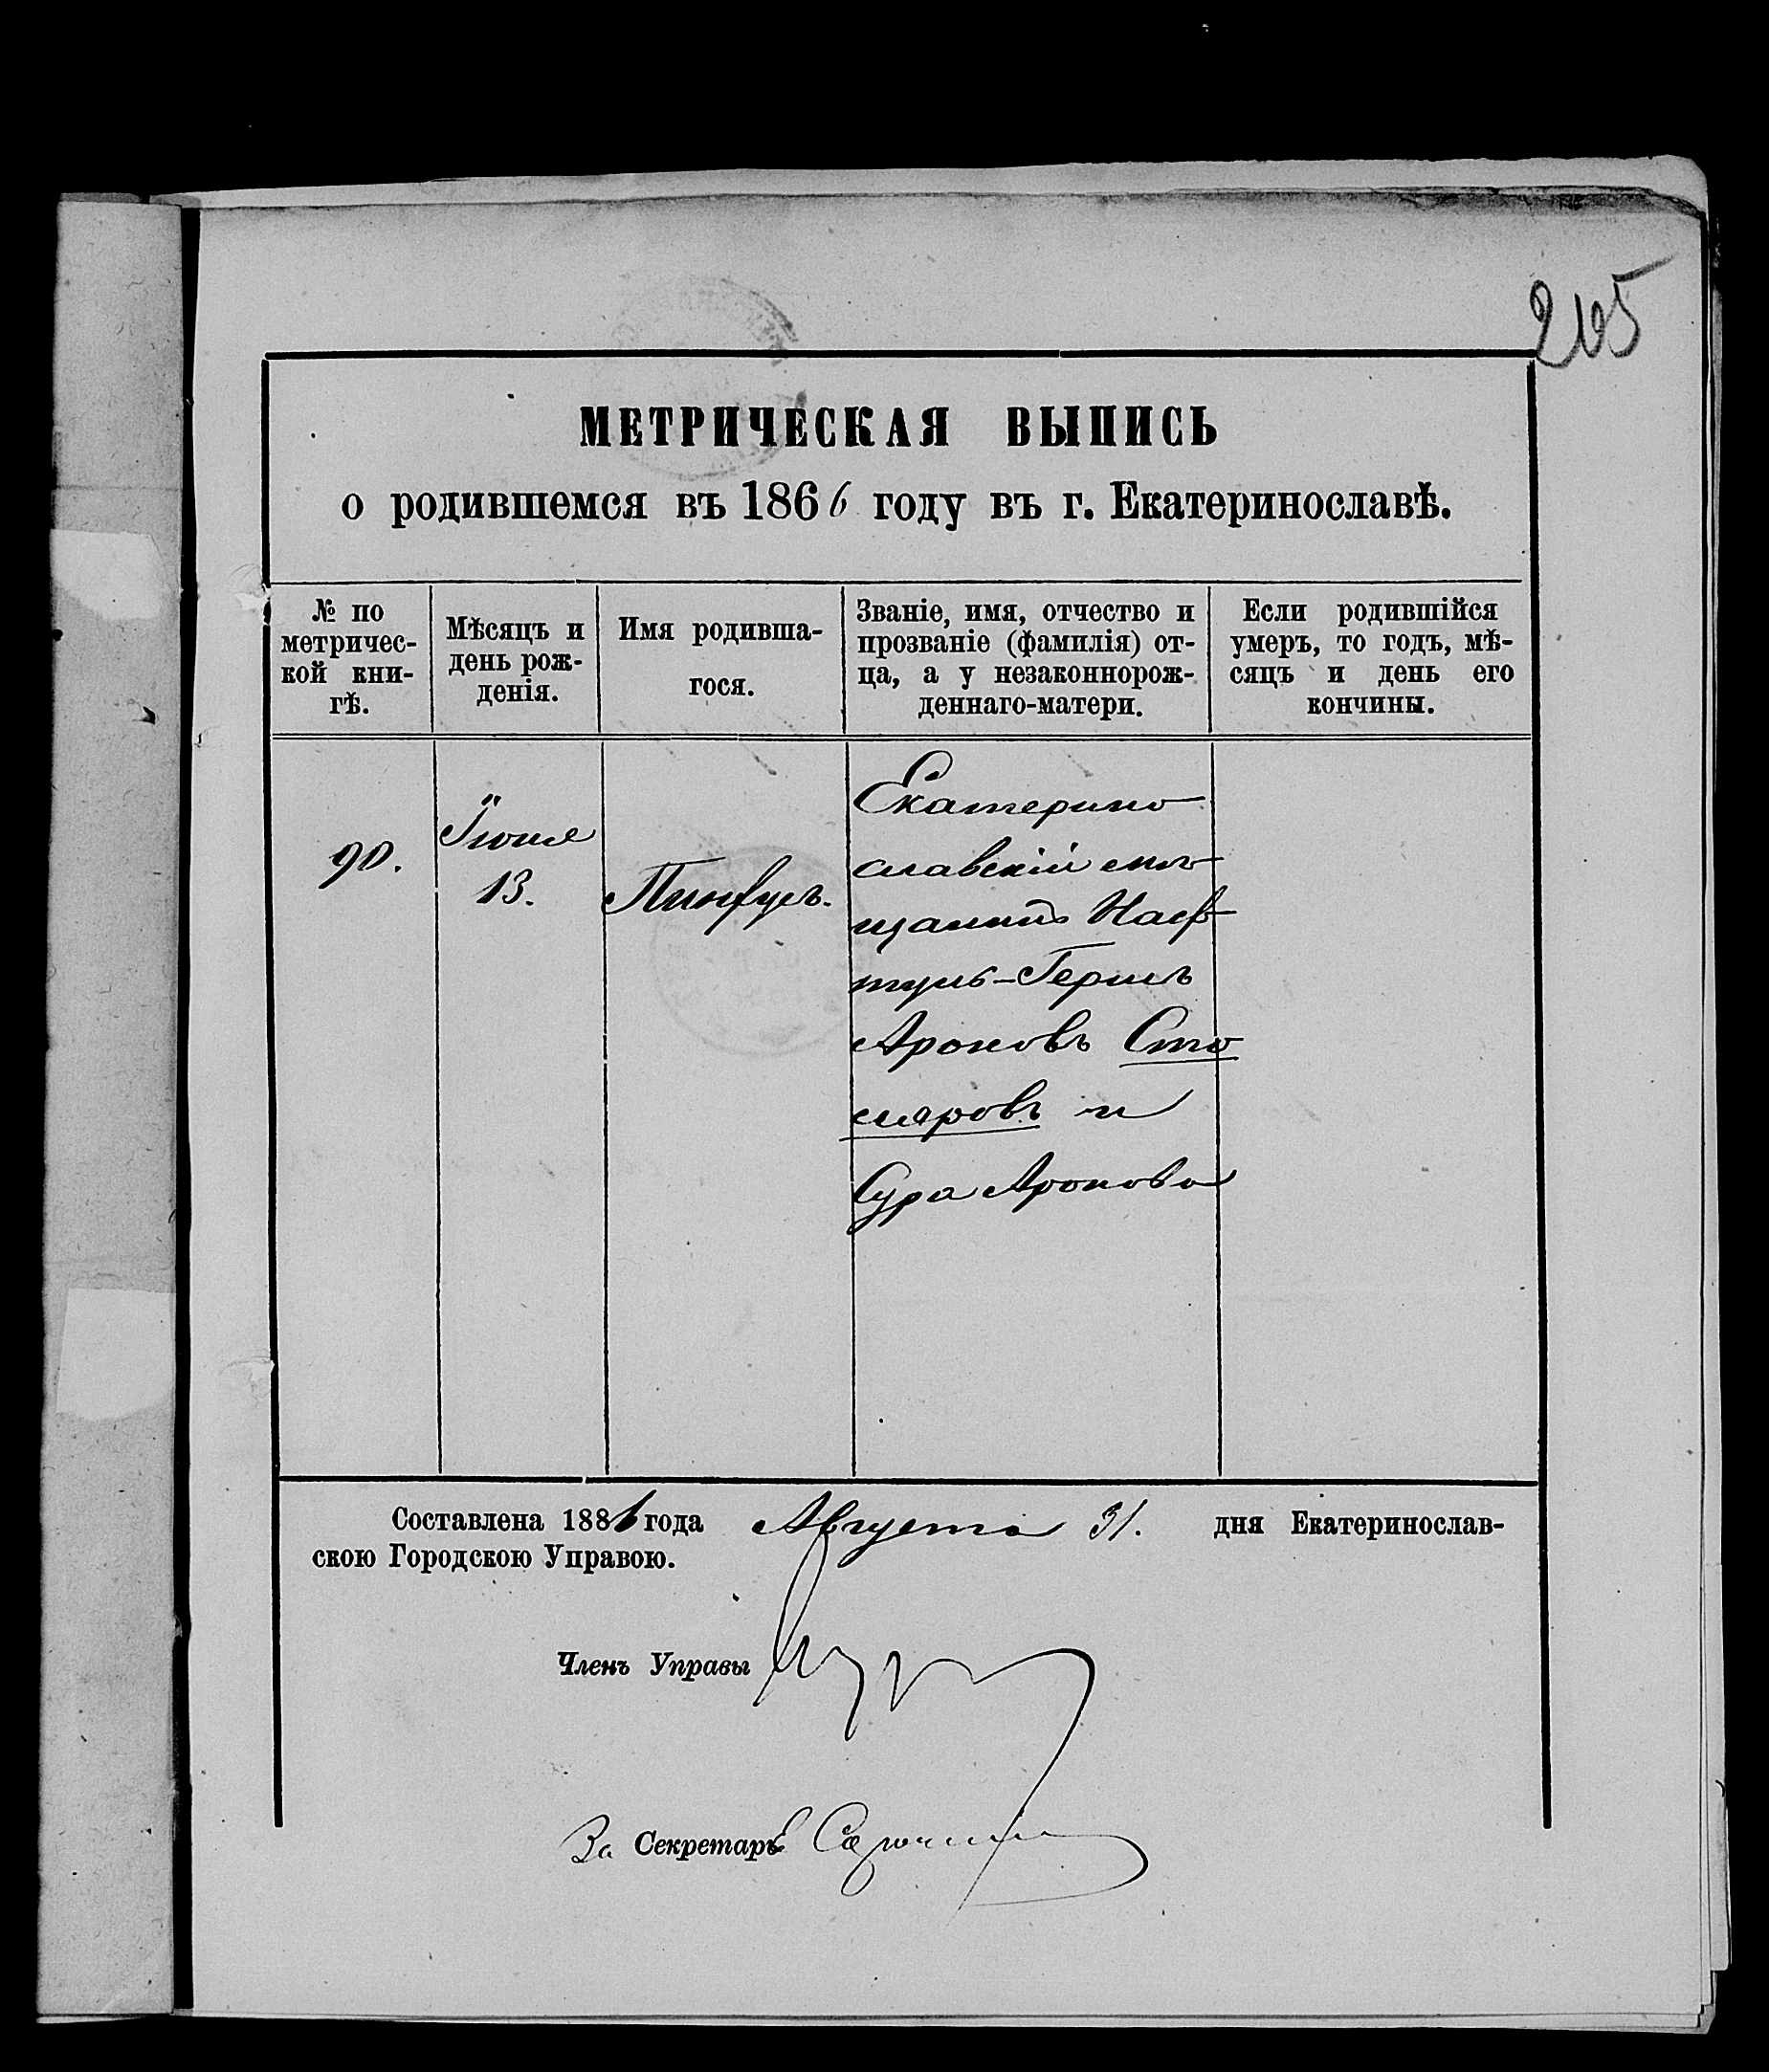 265
МЕТРИЧЕСКАЯ ВЫПИСЬ
о родившемся въ 1866 году въ г. Екатеринославѣ.
№ по
метричес-
кой кни-
гѣ.
Мѣсяцъ и
день рож-
денія.
Имя родивша-
гося.
Званіе, имя, отчество и
прозваніе (фамилія) от-
ца, а у незаконнорож-
деннаго-матери.
Если родившійся
умеръ, то годъ, мѣ-
сяцъ и день его
кончины.
90.
Іюня
13.
Пинхусъ.
Екатерино
славскій мѣ-
щанинъ Наф-
туль-Гершъ
Ароновъ Сто
ляровъ и
Сура Аронова
Составлена 1886 года Августа 31. дня Екатеринослав-
скою Городскою Управою.
Членъ Управы
За Секретаря